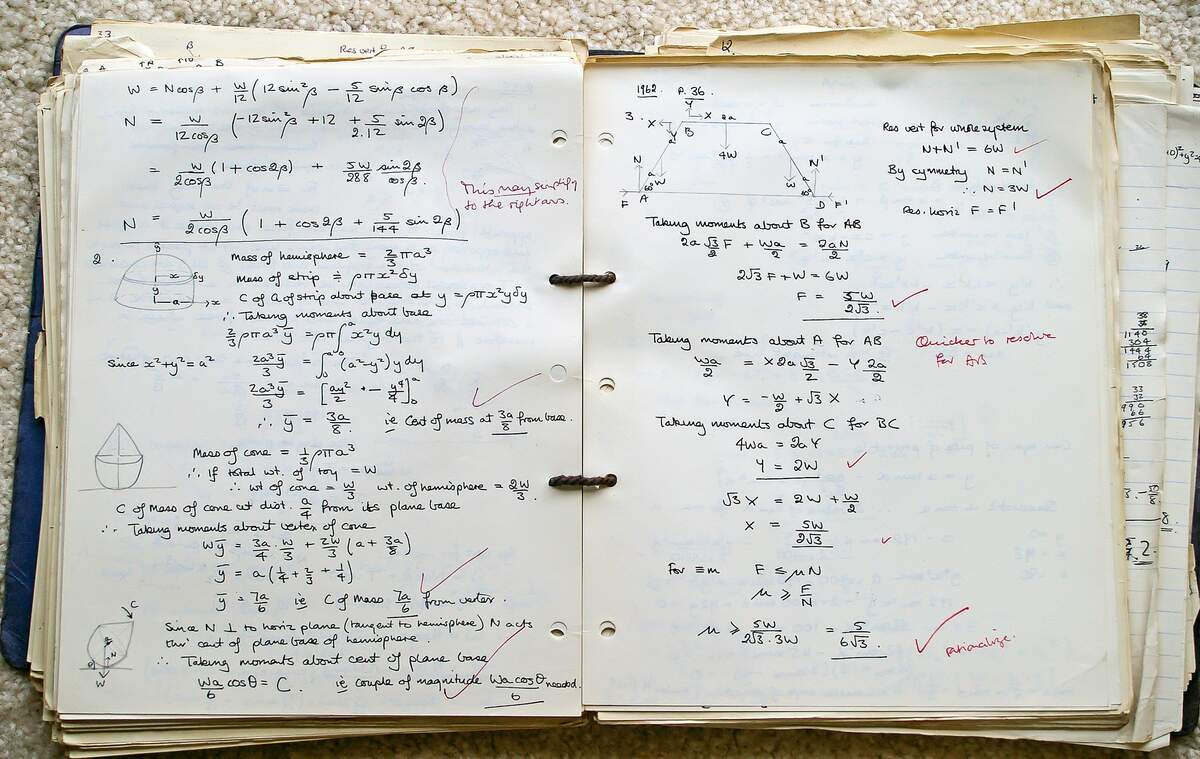 33
Res vert
W = Ncosβ + W/12 (12sin²β − 5/12 sinβ cosβ)
N = W/12cosβ (−12sin²β + 12 + 5/2.12 sin2β)
= W/2cosβ (1 + cos2β) + 5W/288 sin2β/cosβ.
This may simplify
to the right ans.
N = W/2cosβ (1 + cos2β + 5/144 sin2β)
2.
Mass of hemisphere = 2/3 πa³
Mass of strip ≑ ρπx²δy
C of G of strip about base at y = ρπx²yδy
∴ Taking moments about base
2/3 ρπa³ȳ = ρπ∫₀ᵃ x²y dy
since x²+y² = a² 2a³ȳ/3 = ∫₀ᵃ (a²−y²) y dy
2a³ȳ/3 = [ay²/2 − y⁴/4]₀ᵃ
∴ ȳ = 3a/8. ie Cent of mass at 3a/8 from base.
Mass of cone = 1/3 ρπa³
∴ If total wt. of toy = W
∴ wt of cone = W/3 wt. of hemisphere = 2W/3.
C of Mass of cone at dist. a/4 from its plane base
∴ Taking moments about vertex of cone
Wȳ = 3a/4 . W/3 + 2W/3 (a + 3a/8)
ȳ = a(1/4 + 2/3 + 1/4)
ȳ = 7a/6 ie C of Mass 7a/6 from vertex.
Since N ⊥ to horiz plane (tangent to hemisphere) N acts
thro' cent of plane base of hemisphere.
∴ Taking moments about cent of plane base
Wa/6 cosθ = C. ie couple of magnitude Wa cosθ/6 needed.
C
N
W
1962 P. 36.
3.
Y
X X 2a
B C
4W
N N'
W W
60° 60°
F A D F'
Res vert for whole system
N+N' = 6W
By symmetry N = N'
∴ N = 3W
Res. horiz F = F'
Taking moments about B for AB
2a √3/2 F + Wa/2 = 2aN/2
2√3 F + W = 6W
F = 5W/2√3.
Taking moments about A for AB
Quicker to resolve
for AB
Wa/2 = X 2a √3/2 − Y 2a/2
Y = −W/2 + √3 X
Taking moments about C for BC
4Wa = 2a Y
Y = 2W
√3 X = 2W + W/2
X = 5W/2√3
For ≡m F ≤ μN
μ ≥ F/N
μ ≥ 5W/2√3.3W = 5/6√3.
rationalize.